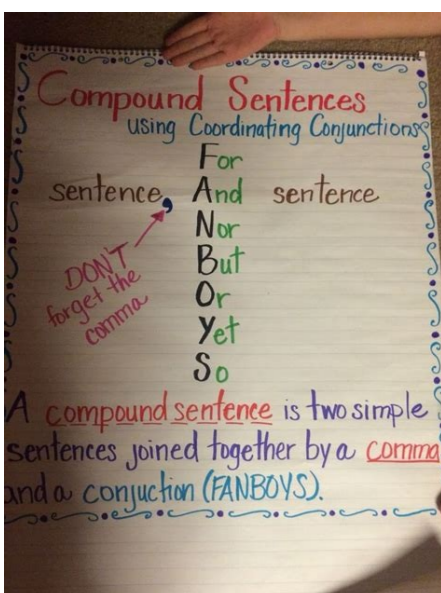 Compound Sentences
using Coordinating Conjunctions
For
sentence, And sentence
Nor
DON'T
forget the
comma
But
Or
Yet
So
A compound sentence is two simple
sentences joined together by a comma
and a conjuction (FANBOYS).